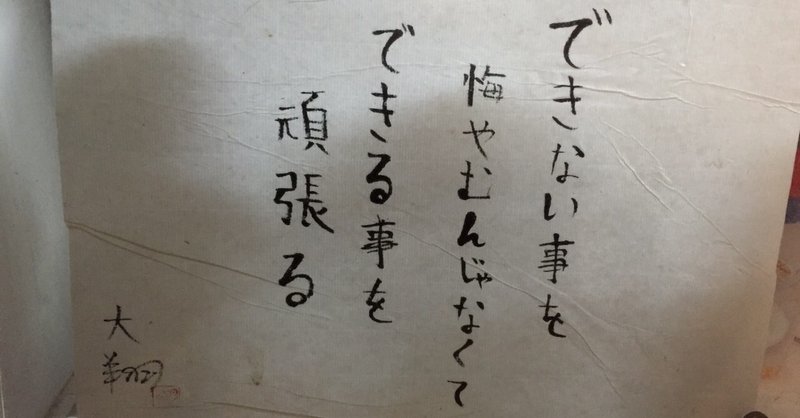 できない事を
悔やむんじゃなくて
できる事を
頑張る
大翔